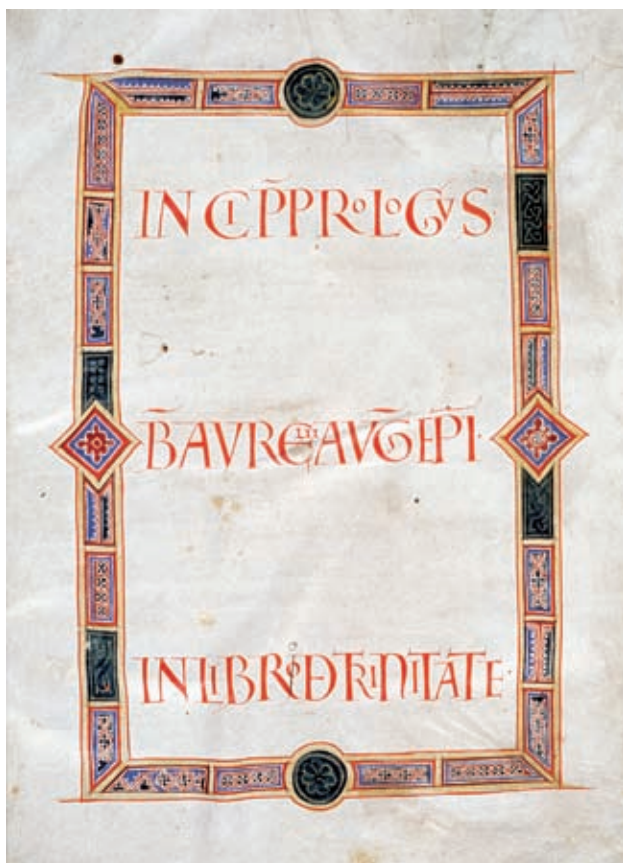 INCIP̄ PROLOGVS·
B̄ AVRELII AVḠ EP̄I·
IN LIBRO DE TRINITATE·